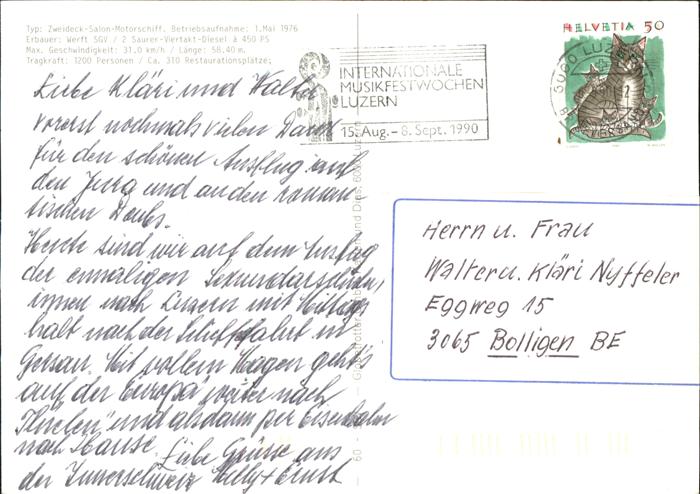 Typ: Zweideck-Salon-Motorschiff. Betriebsaufnahme: 1.Mai 1976
Erbauer: Werft SGV / 2 Saurer-Viertakt-Diesel à 450 PS
Max. Geschwindigkeit: 31.0 km/h / Länge: 58.40 m.
Tragkraft: 1200 Personen / Ca. 310 Restaurationsplätze;
Liebe Kläri und Walter
vorerst nochmals vielen Dank
für den schönen Ausflug auf
den Jura und an den roman-
tischen Doubs.
Heute sind wir auf dem Ausflug
der ehmaligen Sekundarschüler/
innen nach Luzern mit Mittags
halt nach der Schifffahrt in
Gersau. Mit vollem Magen geht's
auf der "Europa" weiter nach
"Flüelen" und alsdann per Eisenbahn
nach Hause. Liebe Grüsse aus
der Innerschweiz Willy + Ernst
INTERNATIONALE
MUSIKFESTWOCHEN
LUZERN
15. Aug. – 8. Sept. 1990
HELVETIA 50
6000 LUZERN
Herrn u. Frau
Walter u. Kläri Nyffeler
Eggweg 15
3065 Bolligen BE